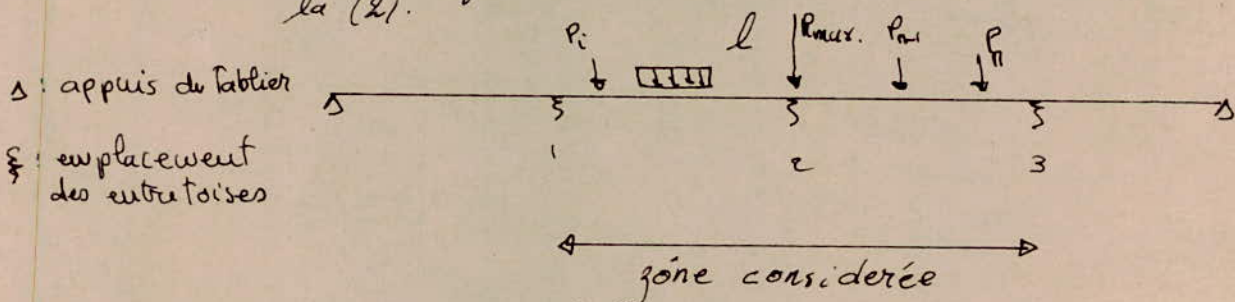 la (2).
Pi l Pmax. Pn-1 Pn
Δ : appuis du Tablier
ξ : emplacement
des entretoises
1 2 3
zóne considerée